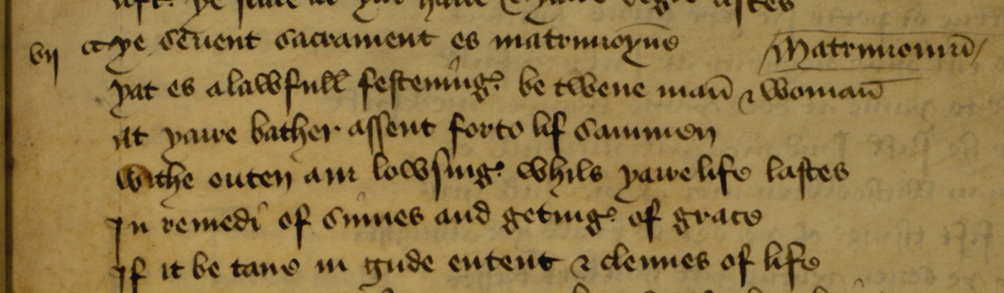 vij ye seuent sacrament es matrimoyne Matrimoniu
yat es a lawfull festening be twene man & woman
at yaire bather assent forto lif sammen
Withe outen ani lowsing whils yaire life lastes
In remedi of sinnes and geting of grace
If it be tane in gude entent & clennes of life